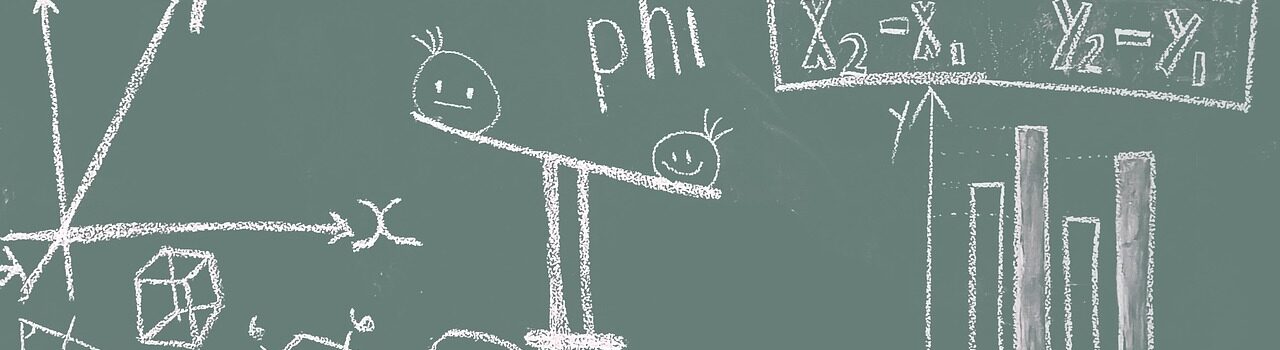 phi
X₂-X₁ Y₂-Y₁
Y
X
6 6